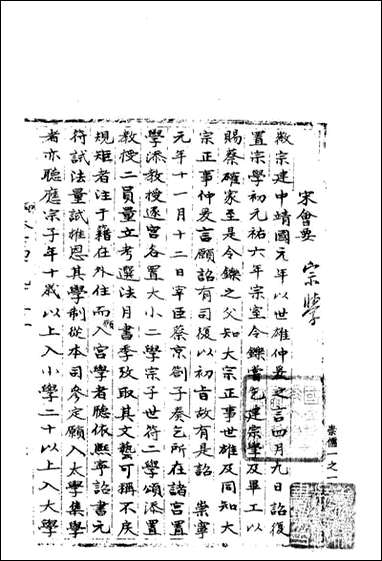 宋會要
宗學
徽宗建中靖國元年以世雄仲爰之言四月九日詔復
置宗學初元祐六年宗室令鑠嘗乞建宗學及畢工以
賜蔡確家至是令鑠之父知大宗正事世雄及同知大
宗正事仲爰言願詔有司復以初旨故有是詔 崇寧
元年十一月十二日宰臣蔡京劄子奏乞所在諸宮置
學添教授逐宮各置大小二學宗子世符二學頌添置
教授二員量立考選法月書季攷取其文藝可稱不戾
規矩者注于籍在外住而入宮學者聽依熙寧詔書元
符試法量試推恩其學制從本司參定願入太學集學
者亦聽應宗子年十歲以上入小學二十以上入大學
崇儒一之一